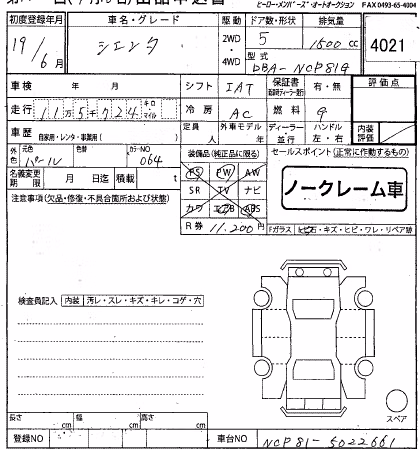 ヒーロー・メンバーズ・オートオークション FAX 0493-65-4004
初度登録年月 車名・グレード 駆動 ドア数・形状 排気量
19/6月 シエンタ 2WD・4WD 5 1500cc 4021
型式
DBA-NCP81G
車検 年 月 シフト IAT 保証書 有・無 評価点
走行 11万5千724 キロ マイル 冷房 AC 燃料 9
車歴 自家用・レンタ・事業用( ) 定員 人 外車モデル 年 ディーラー 並行 ハンドル 左・右 内装評価
外色 元色 パール 色替 カラーNO 064 装備品(純正品に限る) セールスポイント(正常に作動するもの)
名義変更期限 月 日迄 積載 t PS PW AW
ノークレーム車
SR TV ナビ
注意事項(欠品・修復・不具合箇所および状態) カワ エアB ABS
R券 11,200円 Fガラス ヒビ石・キズ・ヒビ・ワレ・リペア跡
検査員記入 内装 汚レ・スレ・キズ・キレ・コゲ・穴
スペア
長さ cm 幅 cm 高さ cm
登録NO 車台NO NCP81-5022661